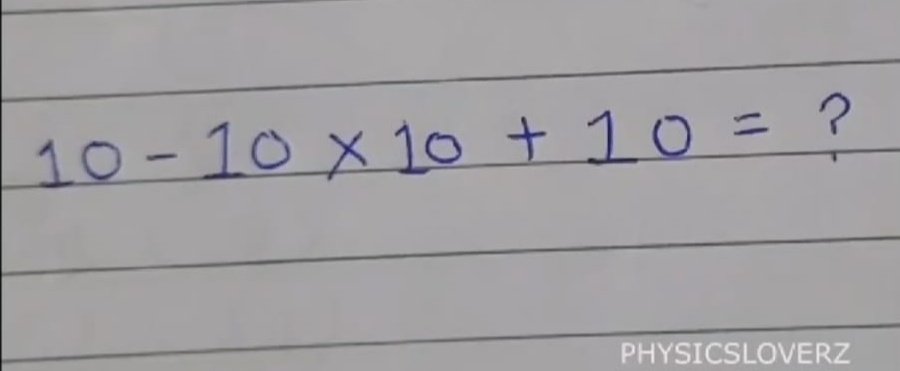 10 - 10 × 10 + 10 = ?
PHYSICSLOVERZ